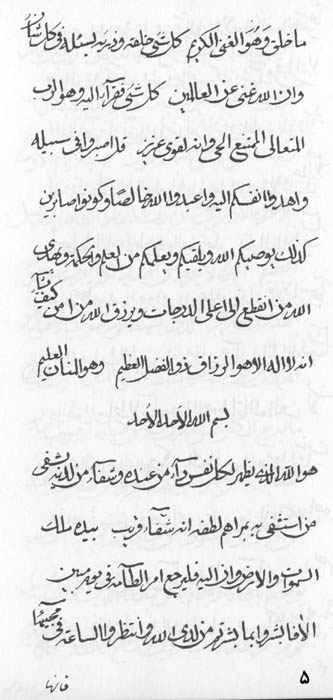 ما خلق وهو الغني الكريم كل شيء خلقته وذريه ليسئله في كل شأن
وان الله غني عن العالمين كل شيء فقرآء اليه وهو الرب
المتعالي الممتنع الحي وانه لقوي عزيز قل اصبروا في سبيله
واهدوا انفسكم اليه واعبدوا الله خالصا وكونوا صابرين
كذلك يوصيكم الله ويلقيكم ويعلمكم من لعلم والحكمة ويهدي
الله من انقطع الى اعلى الدرجات ويرزق الله من امن كيف يشآء
انه لا اله الا هو الرزاق ذو الفضل العظيم وهو المنان العليم
بسم الله الأحد الأحد
هو الله الذي يظهر لكل نفس دآء من عنده وشفآء من لديه ليشفى
من استشفى به بمراهم لطفه انه شفآء قريب بيده ملك
السموات والارض وان اليه فليرجع امر الطآمة في يوم مبين
الا فابشروا بما بشرتم من لدى الله وانتظروا الساعة في مجيئها
فانها
۵